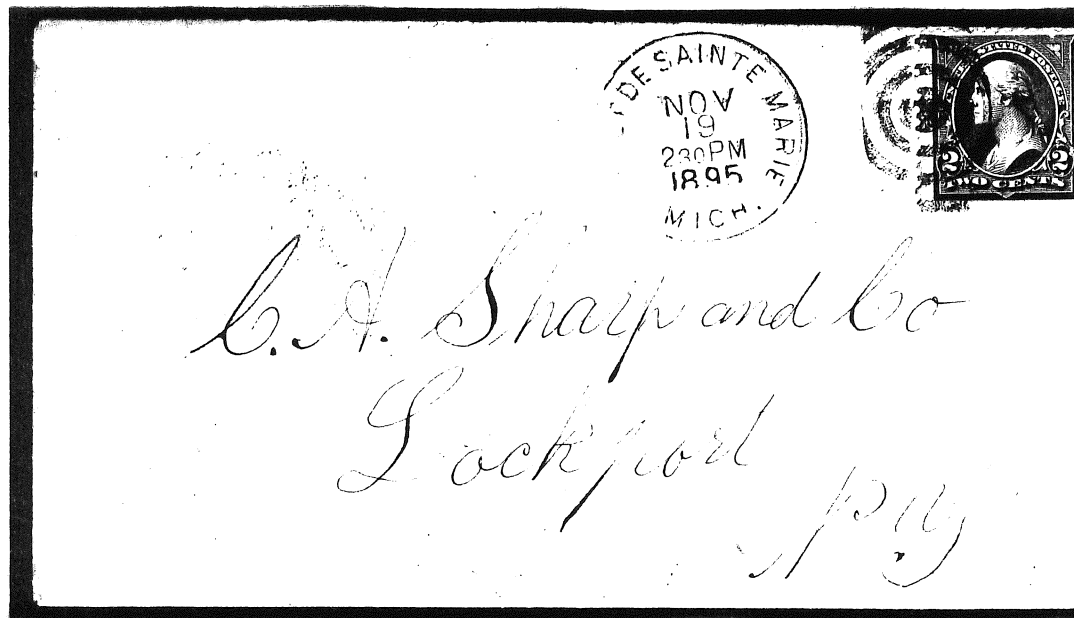 DE SAINTE MARIE
NOV
19
230PM
1895
MICH.
STATES POSTAGE
2 2
TWO CENTS
C. A. Sharp and Co
Lockport